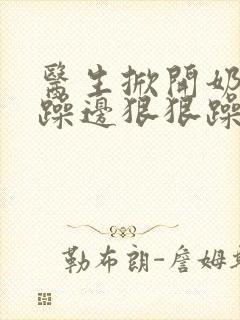 醫生掀開奶
躁邊狠狠躁
勒布朗-詹姆斯